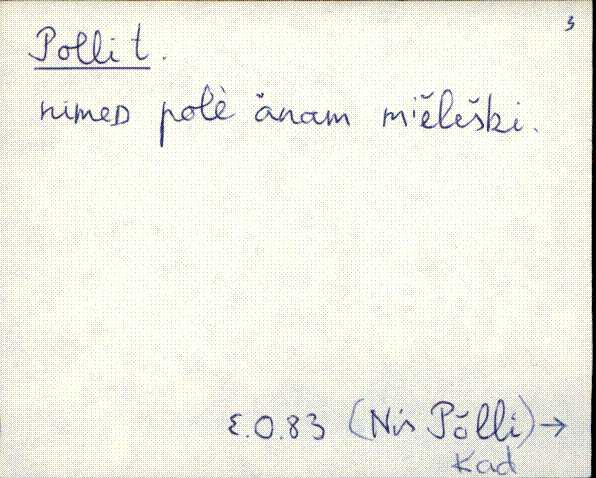 3
Polli t.
nimeD polè änam miĕleški.
E.O.83 (Nis Põlli) →
Kad